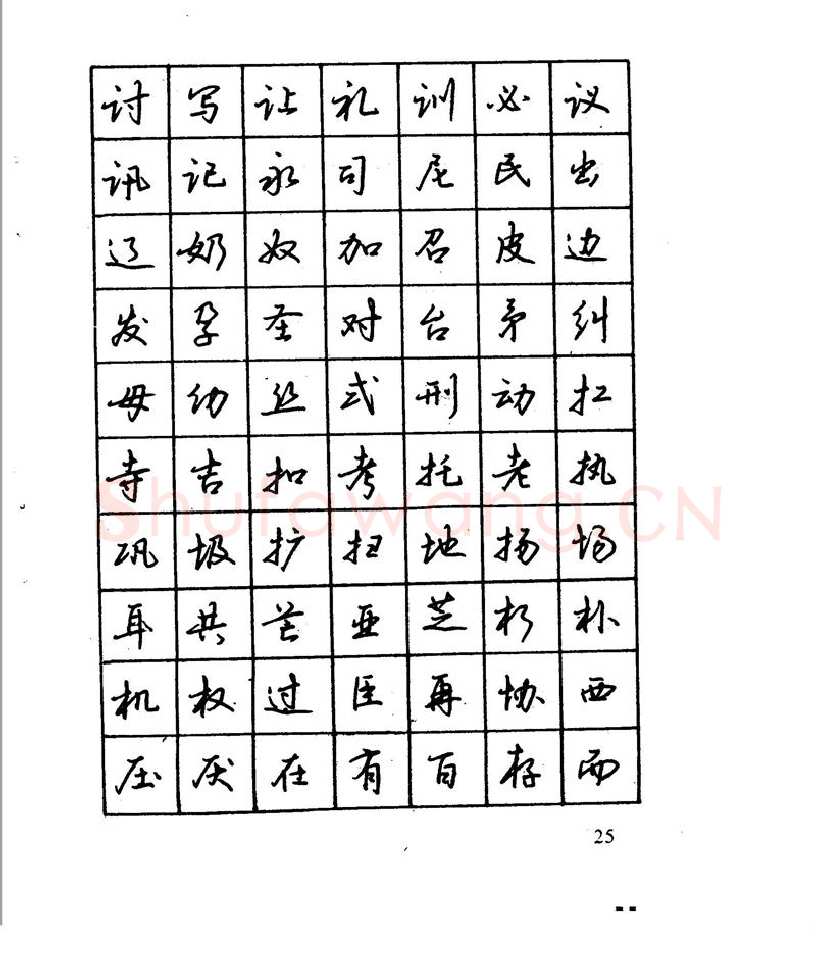 讨 写 让 礼 训 必 议
讯 记 永 司 尼 民 出
辽 奶 奴 加 召 皮 边
发 孕 圣 对 台 矛 纠
母 幼 丝 式 刑 动 扛
寺 吉 扣 考 托 老 执
Shufawang.CN
巩 圾 扩 扫 地 扬 场
耳 共 芒 亚 芝 朽 朴
机 权 过 臣 再 协 西
压 厌 在 有 百 存 而
25